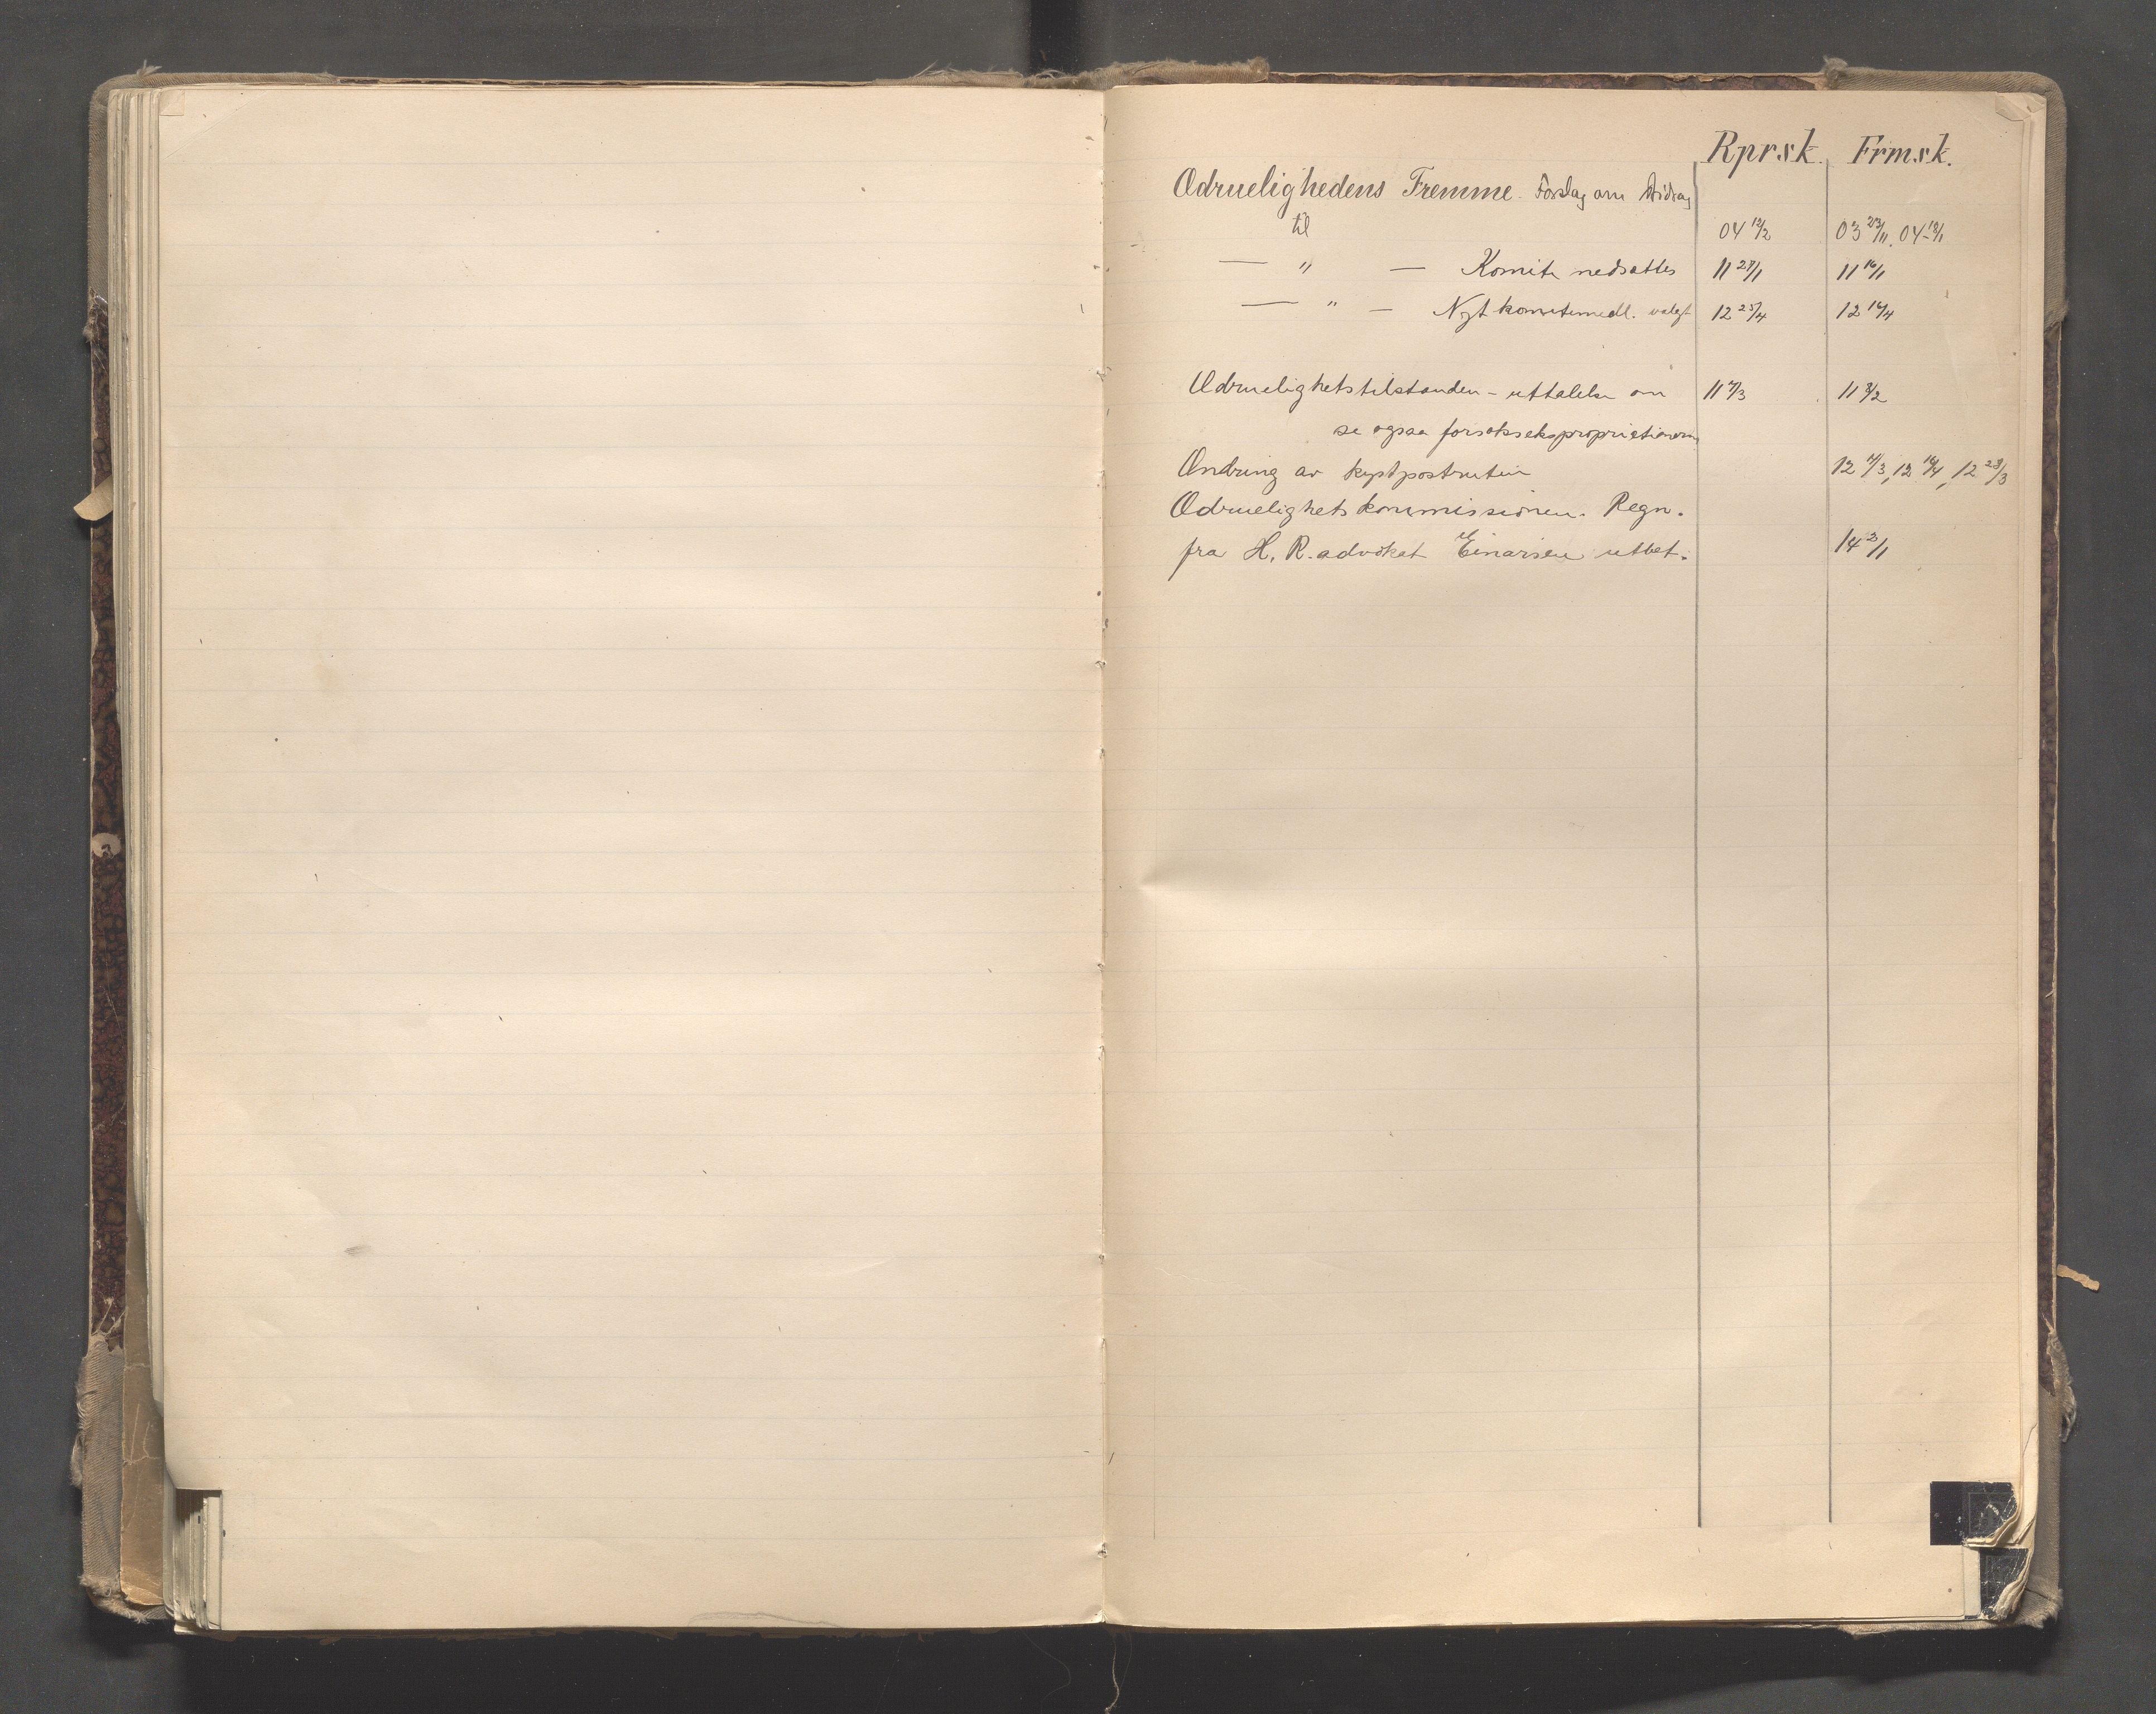 Rprsk. Frmsk.
Ædruelighedens Fremme. Forslag om Bidrag
til 04 12/2 03 23/11, 04 18/1
— " — Komite nedsattes 11 27/1 11 16/1
— " — Nyt komitemedl. valgt 12 25/4 12 16/4
Ædruelighetstilstanden - uttalelse om 11 7/3 11 3/2
se ogsaa forsøksekspropriationerne
Ændring av kystpostruten 12 11/3, 12 16/4, 12 28/3
Ædruelighetskommissionen. Regn.
fra H. R. advokat Einarsen utbet. 14 2/1